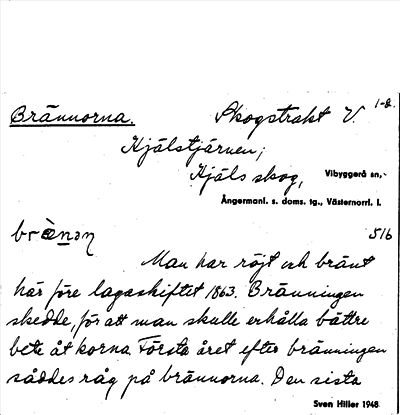 Brännorna. Skogstrakt V. 1-d.
Kjälstjärnen;
Kjäls skog, Vibyggerå sn,
Ångermanl. s. doms. tg., Västernorrl. l.
516
Man har röjt och bränt
här före lagaskiftet 1863. Bränningen
skedde, för att man skulle erhålla bättre
bete åt korna. Första året efter bränningen
såddes råg på brännorna. Den sista
Sven Hiller 1948